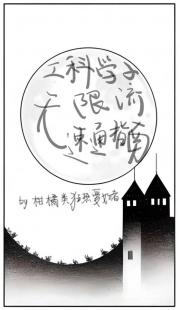 工科学子
无限流
速通指南
by 柑橘类狂热爱好者